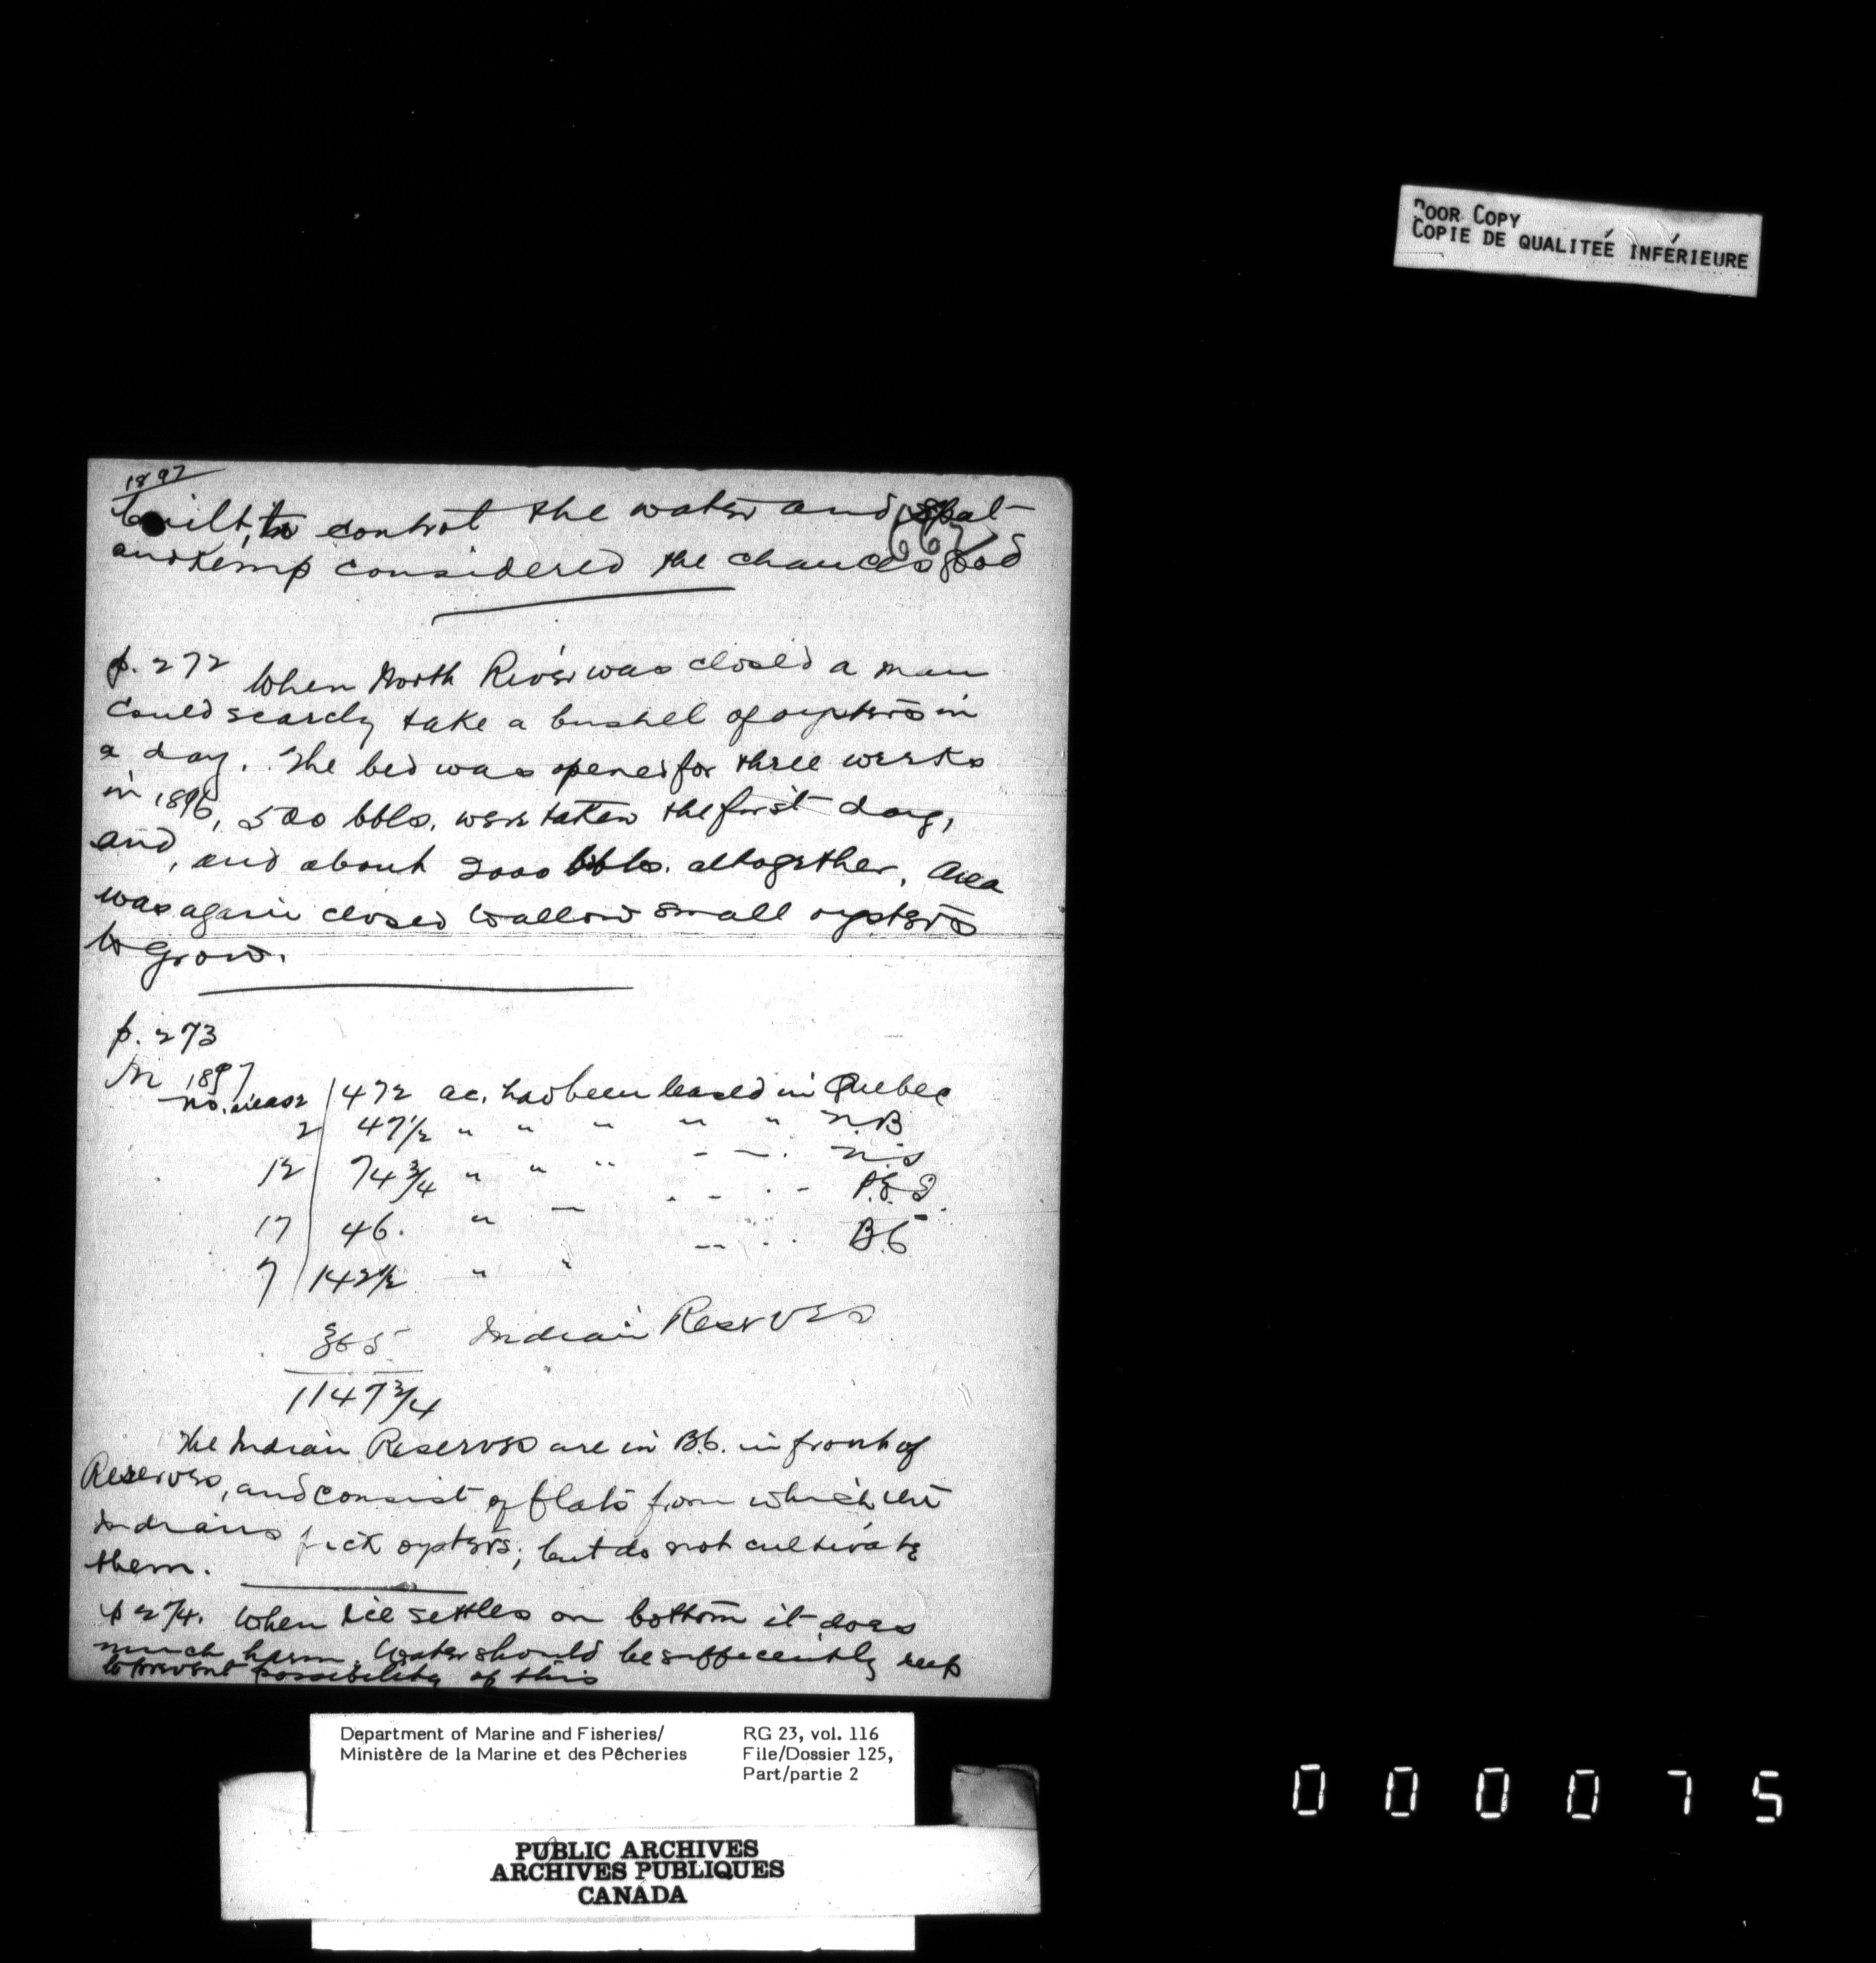 POOR COPY
COPIE DE QUALITEÉ INFÉRIEURE
1897
built, to control the water and spat
667
and Kemp considered the chances good
p. 272 When North River was closed a man
could scarcly take a bushel of oysters in
a day. The bed was opened for three weeks
in 1896, 500 bbls. were taken the first day,
and, and about 2000 bbls. altogether. Area
was again closed to allow small oysters
to grow.
p. 273
In 1897
no. leases 472 ac. had been leased in Quebec
2 47 1/2 " " " " " N.B
12 74 3/4 " " " - - . N.S
17 46. " - . - . - P.E.I.
7 142 1/2 " " -- . . B.C
365 Indian Reserves
1147 3/4
The Indian Reserves are in B.C. in front of
Reserves, and consist of flats from which the
Indians pick oysters; but do not cultivate
them.
p 274. When ice settles on bottom it does
much harm. Water should be sufficently deep
to prevent possibility of this
Department of Marine and Fisheries/
Ministère de la Marine et des Pêcheries
RG 23, vol. 116
File/Dossier 125,
Part/partie 2
PUBLIC ARCHIVES
ARCHIVES PUBLIQUES
CANADA
000075